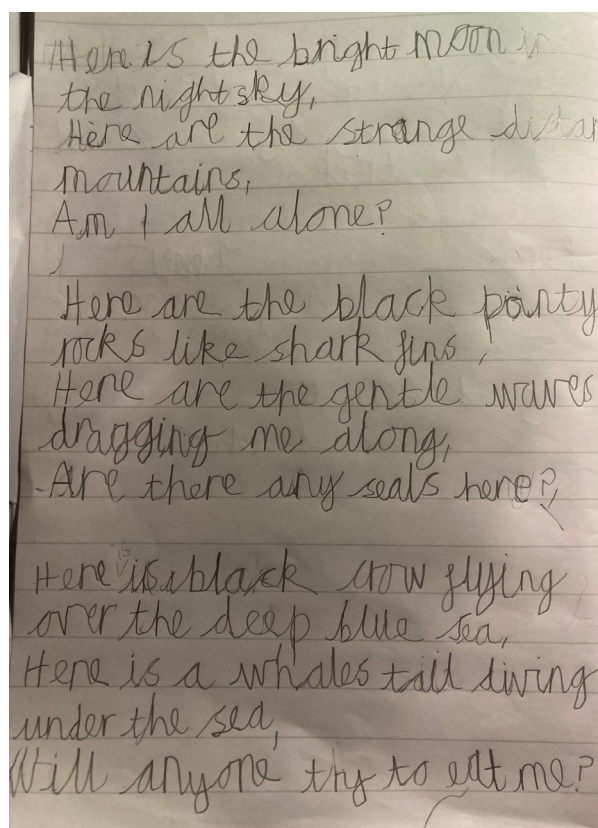 Here is the bright moon in
the night sky,
Here are the strange distan
mountains,
Am I all alone?
Here are the black pointy
rocks like shark fins,
Here are the gentle waves
dragging me along,
Are there any seals here?
Here is a black crow flying
over the deep blue sea,
Here is a whales tail diving
under the sea,
Will anyone try to eat me?